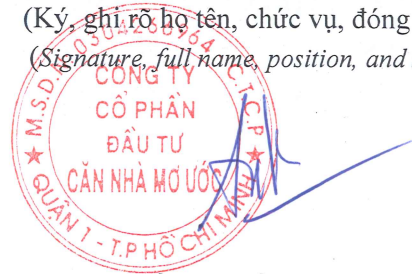 (Ký, ghi rõ họ tên, chức vụ, đóng
(Signature, full name, position, and
M.S.D.N: 0304266964 - C.T.C.P
CÔNG TY
CỔ PHẦN
ĐẦU TƯ
CĂN NHÀ MƠ ƯỚC
QUẬN 1 - T.P HỒ CHÍ MINH